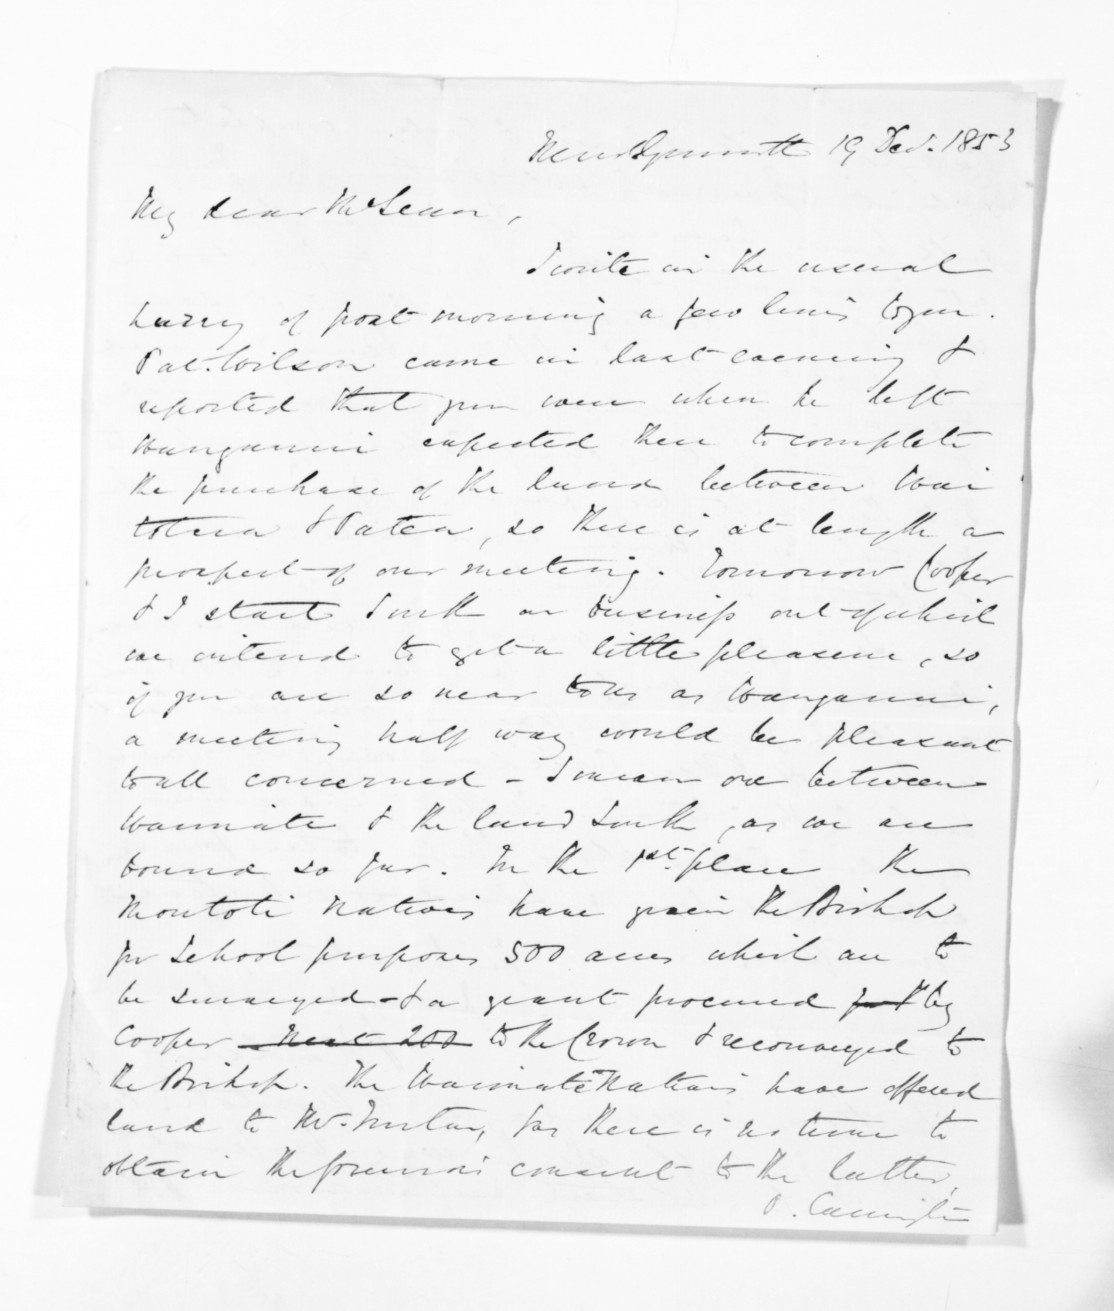 New Plymouth 19 Dec. 1853
My dear McLean,
I write in the usual
hurry of post morning a few lines to you.
Pat. Wilson came in last evening &
reported that you were when he left
Wanganui expected there to complete
the purchase of the land between Wai
totara & Patea, so there is at length a
prospect of our meeting. Tomorrow Cooper
& I start South on business out of which
we intend to get a little pleasure, so
if you are so near to us as Wanganui,
a meeting half way would be pleasant
to all concerned - I mean one between
Waimate & the land South, as we are
bound so far. In the 1st. place the
Natives have given the Bishop
for School purposes 500 acres which are to
be surveyed - & a grant procured by
Cooper next 200 to the Crown & reconveyed to
the Bishop. The Waimate Natives have offered
land to Mr. but there is no time to
obtain the Governor's consent to the latter,
O. Carrington